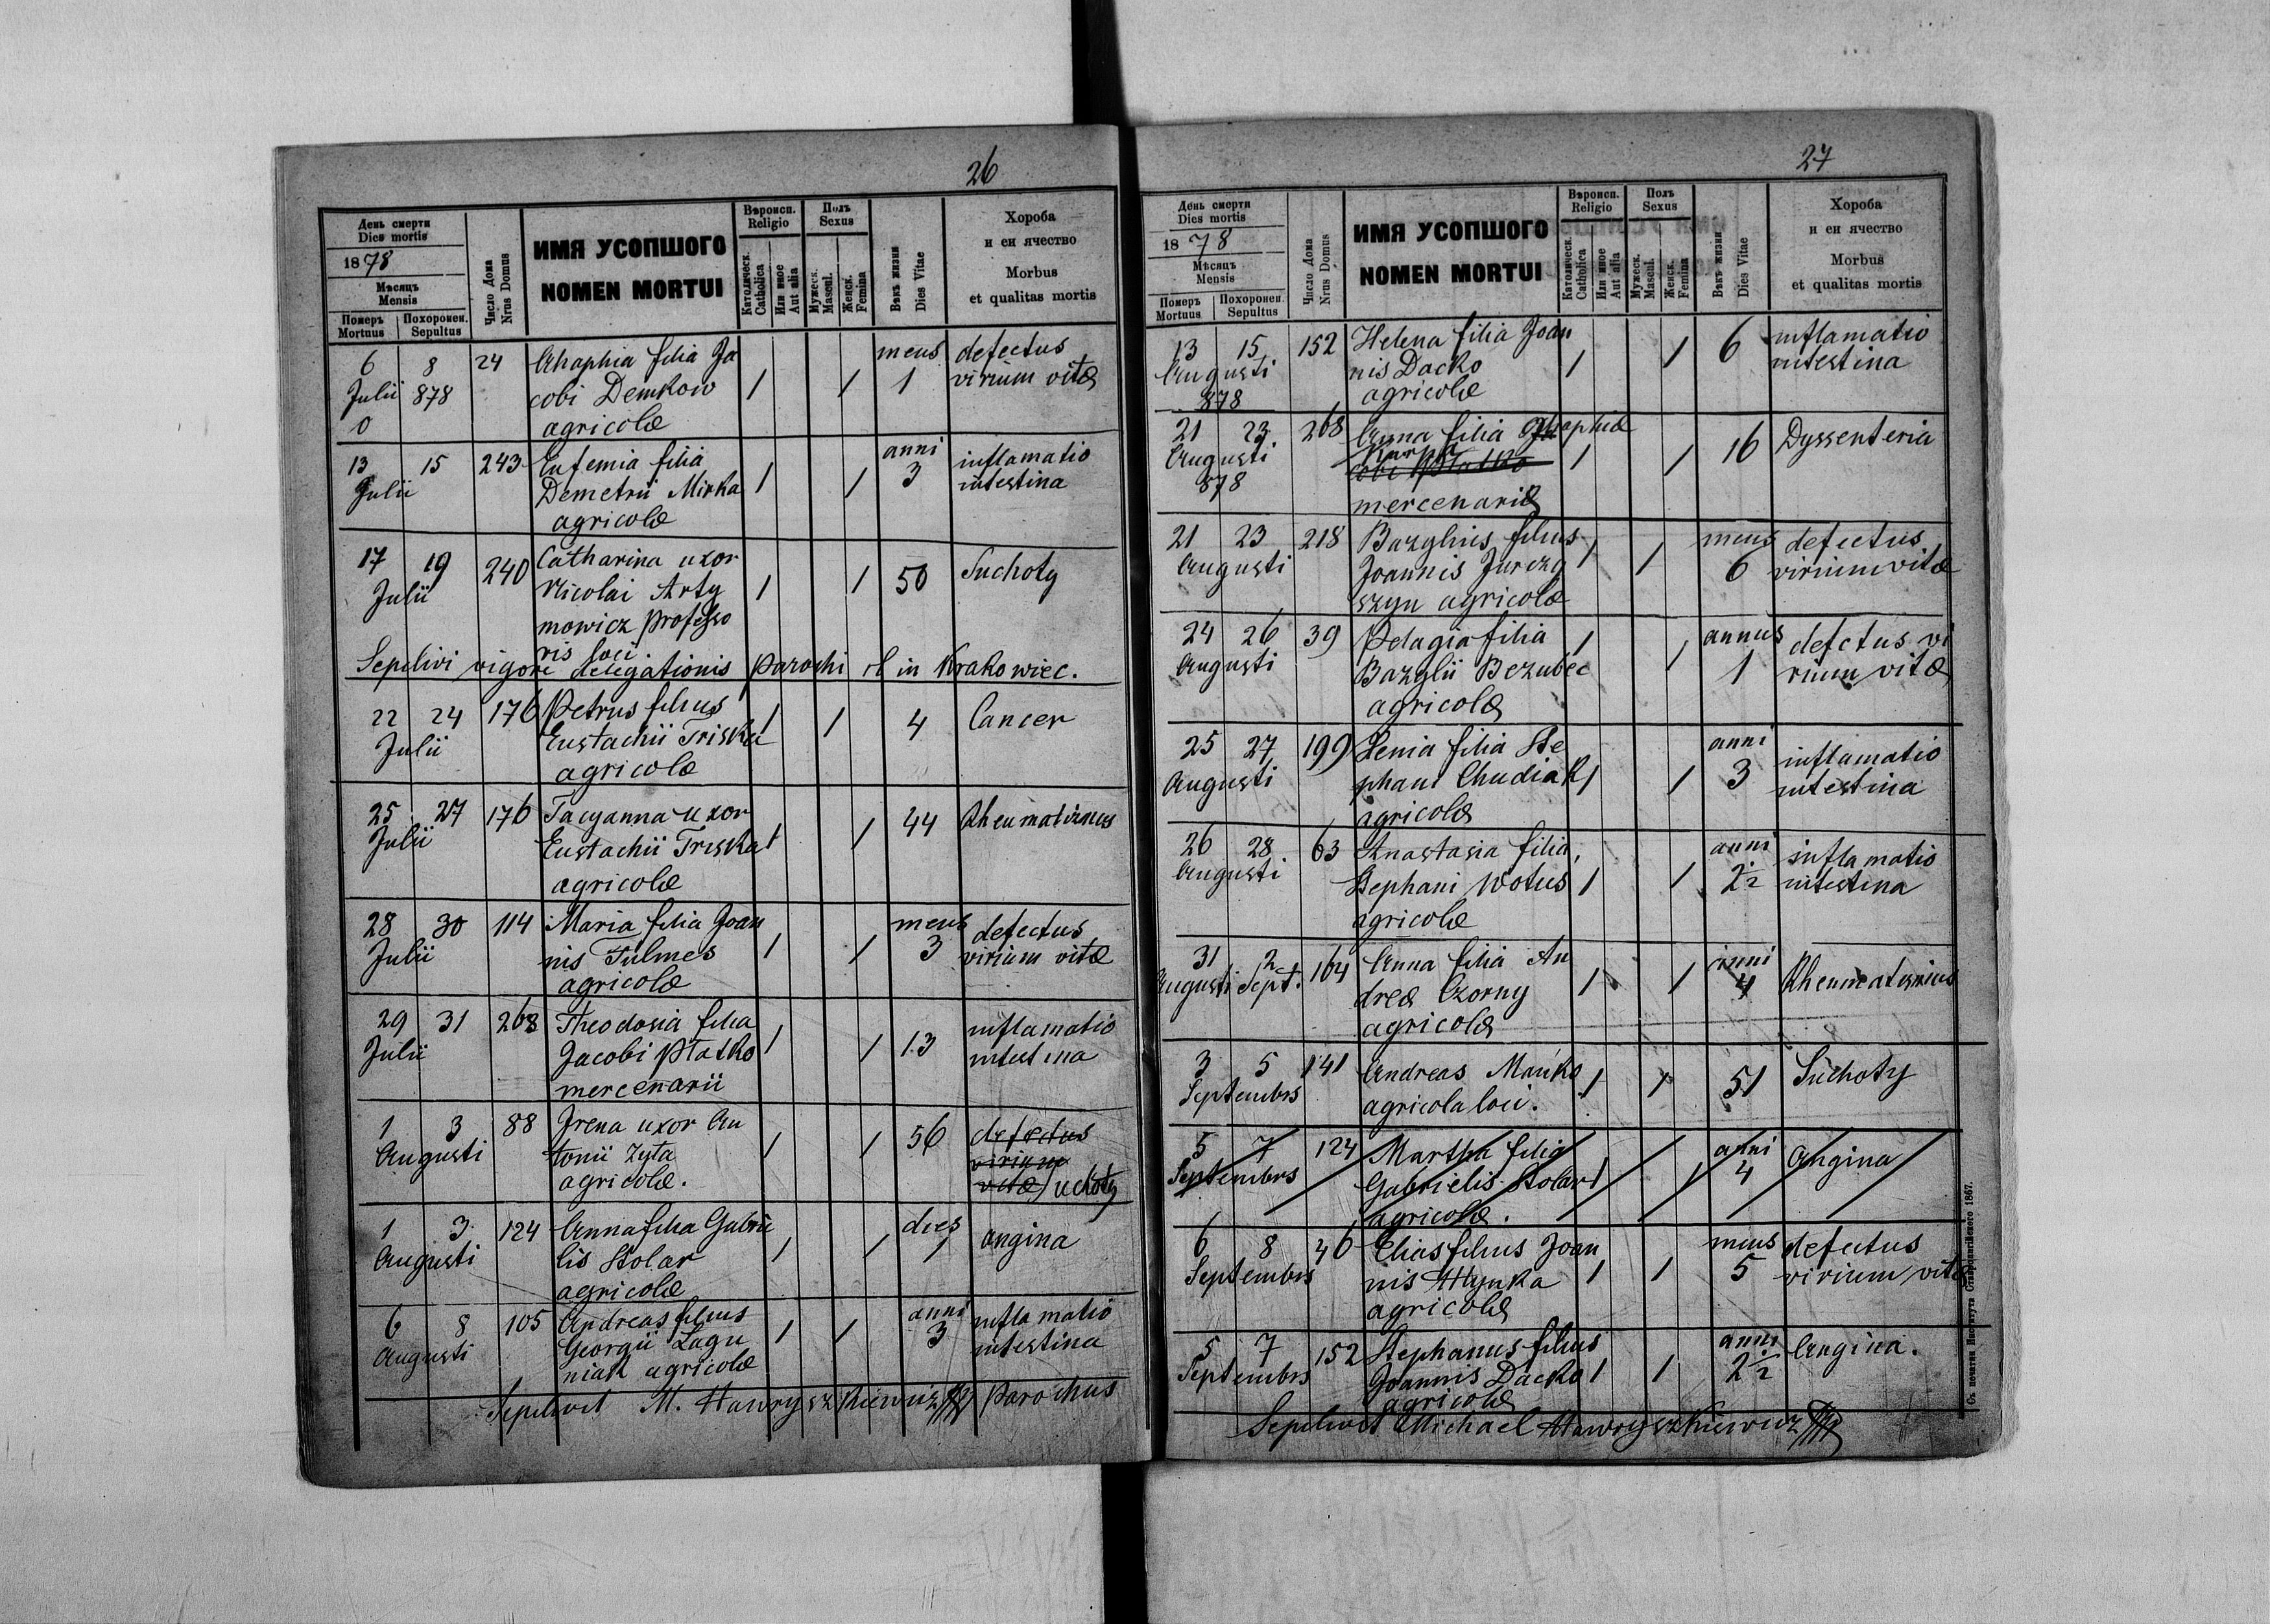 26
День смерти
Dies mortis
1878
Мѣсяцъ
Mensis
Померъ
Mortuus
Похоронен.
Sepultus
Число Дома
Nrus Domus
ИМЯ УСОПШОГО
NOMEN MORTUI
Вѣроисп.
Religio
Католическ.
Catholica
Или иное
Aut alia
Полъ
Sexus
Мужеск.
Mascul.
Женск.
Femina
Вѣкъ жизни
Dies Vitae
Хороба
и еи ячество
Morbus
et qualitas mortis
6 8 24 Ahaphia filia Ja mens defectus
Julii 878 cobi Demkow / / 1 virium vitæ
0 agricolæ
13 15 243 Eufemia filia anni inflamatio
Julii Demetrii Mirka / / 3 intestina
agricolæ
17 19 240 Catharina uxor
Julii Nicolai Arty / / 50 Suchoty
mowicz professo
ris loci.
Sepelivi vigore delegationis parochi rl in Krakowiec.
22 24 176 Petrus filius / / 4 Cancer
Julii Eustachii Triska
agricolæ
25 27 176 Tacyanna uxor / 44 Rheumatizmus
Julii Eustachii Triska /
agricolæ
28 30 114 Maria filia Joan mens defectus
Julii nis Tulmes / / 3 virium vitæ
agricolæ
29 31 268 Theodosia filia inflamatio
Julii Jacobi Płatko / / 13 intestina
mercenarii
1 3 88 Irena uxor An 56 defectus
Augusti tonii Zyta / / virium
agricolæ. vitæ Suchoty
1 3 124 Anna filia Gabrie dies angina
Augusti lis Stolar / / 1
agricolæ
6 8 105 Andreas filius anni inflamatio
Augusti Georgii Lagu / / 3 intestina
niak agricolæ
Sepelivit M. Hawryszkiewicz parochus
27
День смерти
Dies mortis
1878
Мѣсяцъ
Mensis
Померъ
Mortuus
Похоронен.
Sepultus
Число Дома
Nrus Domus
ИМЯ УСОПШОГО
NOMEN MORTUI
Вѣроисп.
Religio
Католическ.
Catholica
Или иное
Aut alia
Полъ
Sexus
Мужеск.
Mascul.
Женск.
Femina
Вѣкъ жизни
Dies Vitae
Хороба
и еи ячество
Morbus
et qualitas mortis
13 15 152 Helena filia Joan / 6 inflamatio
Augusti nis Dacko / intestina
878 agricolæ
21 23. 268 Anna filia Ahaphiæ Dyssenteria
Augusti Karpa / / 16
878 cobi Płatko
mercenariæ
21 23 218 Bazylius filius mens defectus
Augusti Joannis Jurczy / / 6 virium vitæ
szyn agricolæ
24 26 39 Pelagia filia / / annus defectus vi
Augusti Bazylii Bezubec 1 rium vitæ
agricolæ
25 27 199 Xenia filia Ste anni inflamatio
Augusti phani Chudiak / / 3 intestina
agricolæ
26 28 63 Anastasia filia anni inflamatio
Augusti Stephani Wotus / / 2½ intestina
agricolæ
31 2 164 Anna filia An anni Rheumatismus
Augusti Sept. dreæ Czorny / / 4
agricolæ
3 5 141 Andreas Mańko / / 51 Suchoty
Septembris agricola loci.
5 7 124 Martha filia anni angina
Septembris Gabrielis Stolar / / 4
agricolæ.
6 8 46 Elias filius Joan mens defectus
Septembris nis Hłynka / / 5 virium vitæ
agricolæ
5 7 152 Stephanus filius anni Angina.
Septembris Joannis Dacko / / 2½
agricolæ
Sepelivit Michael Hawryszkiewicz
Съ печатни Института Ставропигійского 1867.